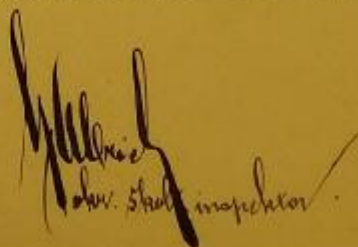 Ulrich
okr. škol. inspektor.